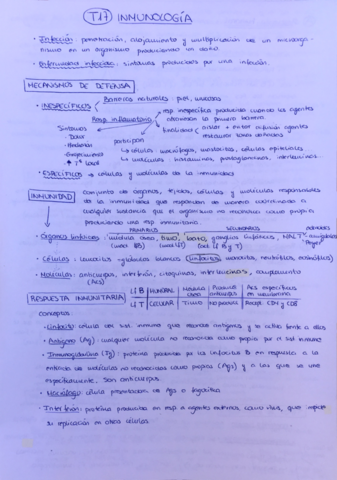 T17 INMUNOLOGÍA
• Infección: penetración, alojamiento y multiplicación de un microorga-
nismo en un organismo produciendo un daño.
• Enfermedad infecciosa: síntomas producidos por una infección.
MECANISMOS DE DEFENSA
• INESPECÍFICOS Barreras naturales piel, mucosas
Resp inflamatoria → resp inespecífica producida cuando los agentes
atraviesan la primera barrera
Síntomas
participan
finalidad aislar + evitar infección agentes
restaurar zonas dañadas
- Dolor
- Hinchazón
↳ células macrófagos, mastocitos, células epiteliales
- ↑ Tª local
↳ moléculas histamina, prostaglandinas, interleucinas
• ESPECÍFICOS → células y moléculas de la inmunidad
INMUNIDAD conjunto de órganos, tejidos, células y moléculas responsables
de la inmunidad que responden de manera coordinada a
cualquier sustancia que el organismo no reconoce como propia
produciendo una resp inmunitaria.
PRIMARIOS SECUNDARIOS
• Órganos linfoides médula ósea, timo, bazo, ganglios linfáticos, MALT
• Células: leucocitos o glóbulos blancos (linfocitos, monocitos, neutrófilos, eosinófilos)
• Moléculas: anticuerpos, interferón, citoquinas, interleucinas, complemento
(Acs)
RESPUESTA INMUNITARIA LB HUMORAL Médula ósea Producen anticuerpos Acs específicos en membrana
LT CELULAR Timo no producen Recept. CD4 y CD8
conceptos:
• Linfocito: célula del sist inmune que reconoce antígenos y se activa frente a ellos
• Antígeno (Ag): cualquier molécula no reconocida como propia por el sist inmune
• Inmunoglobulina (Ig): proteína producida por los linfocitos B en respuesta a la
entrada de moléculas no reconocidas como propias (Ags) y a las que se une
específicamente. Son anticuerpos.
• Macrófago: célula presentadora de Ags o fagocítica
• Interferón: proteína producida en resp a agentes externos como virus, que impide
su replicación en otras células.